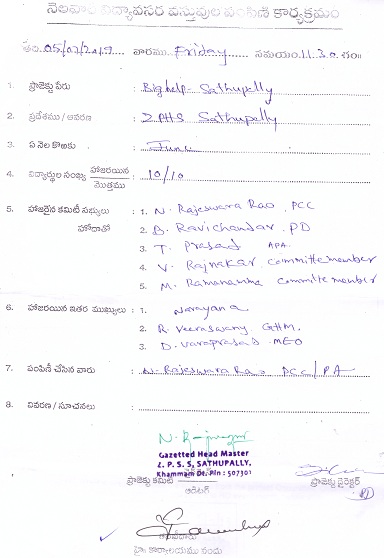 నెలవారీ విద్యావసర వస్తువుల పంపిణీ కార్యక్రమం
తేది. 05/07/2019 వారము Friday సమయం 11.30 గం॥
1. ప్రాజెక్టు పేరు : Bighelp- Sathupally
2. ప్రదేశము / ఆవరణ : ZPHS Sathupally
3. ఏ నెల కొఱకు : June
4. విద్యార్థుల సంఖ్య హాజరయిన / మొత్తము : 10/10
5. హాజరైన కమిటీ సభ్యులు : 1. N. Rajeswara Rao, PCC
హోదాతో 2. B. Ravichandar, PD
3. T. Prasad APA.
4. V. Rajnakar Committe member
5. M. Ramanamma Committe member
6. హాజరయిన ఇతర ముఖ్యులు : 1. Narayana
2. R. Veeraswamy GHM.
3. D. Varaprasad. MEO
7. పంపిణీ చేసిన వారు : N. Rajeswara Rao PCC/PA
8. వివరణ / సూచనలు :
Gazetted Head Master
Z. P. S. S, SATHUPALLY.
Khammam Dt. Pin : 507301
ప్రాజెక్టు కమిటీ
ఆడిటర్
ప్రాజెక్టు డైరెక్టర్
హై కార్యాలయము నందు